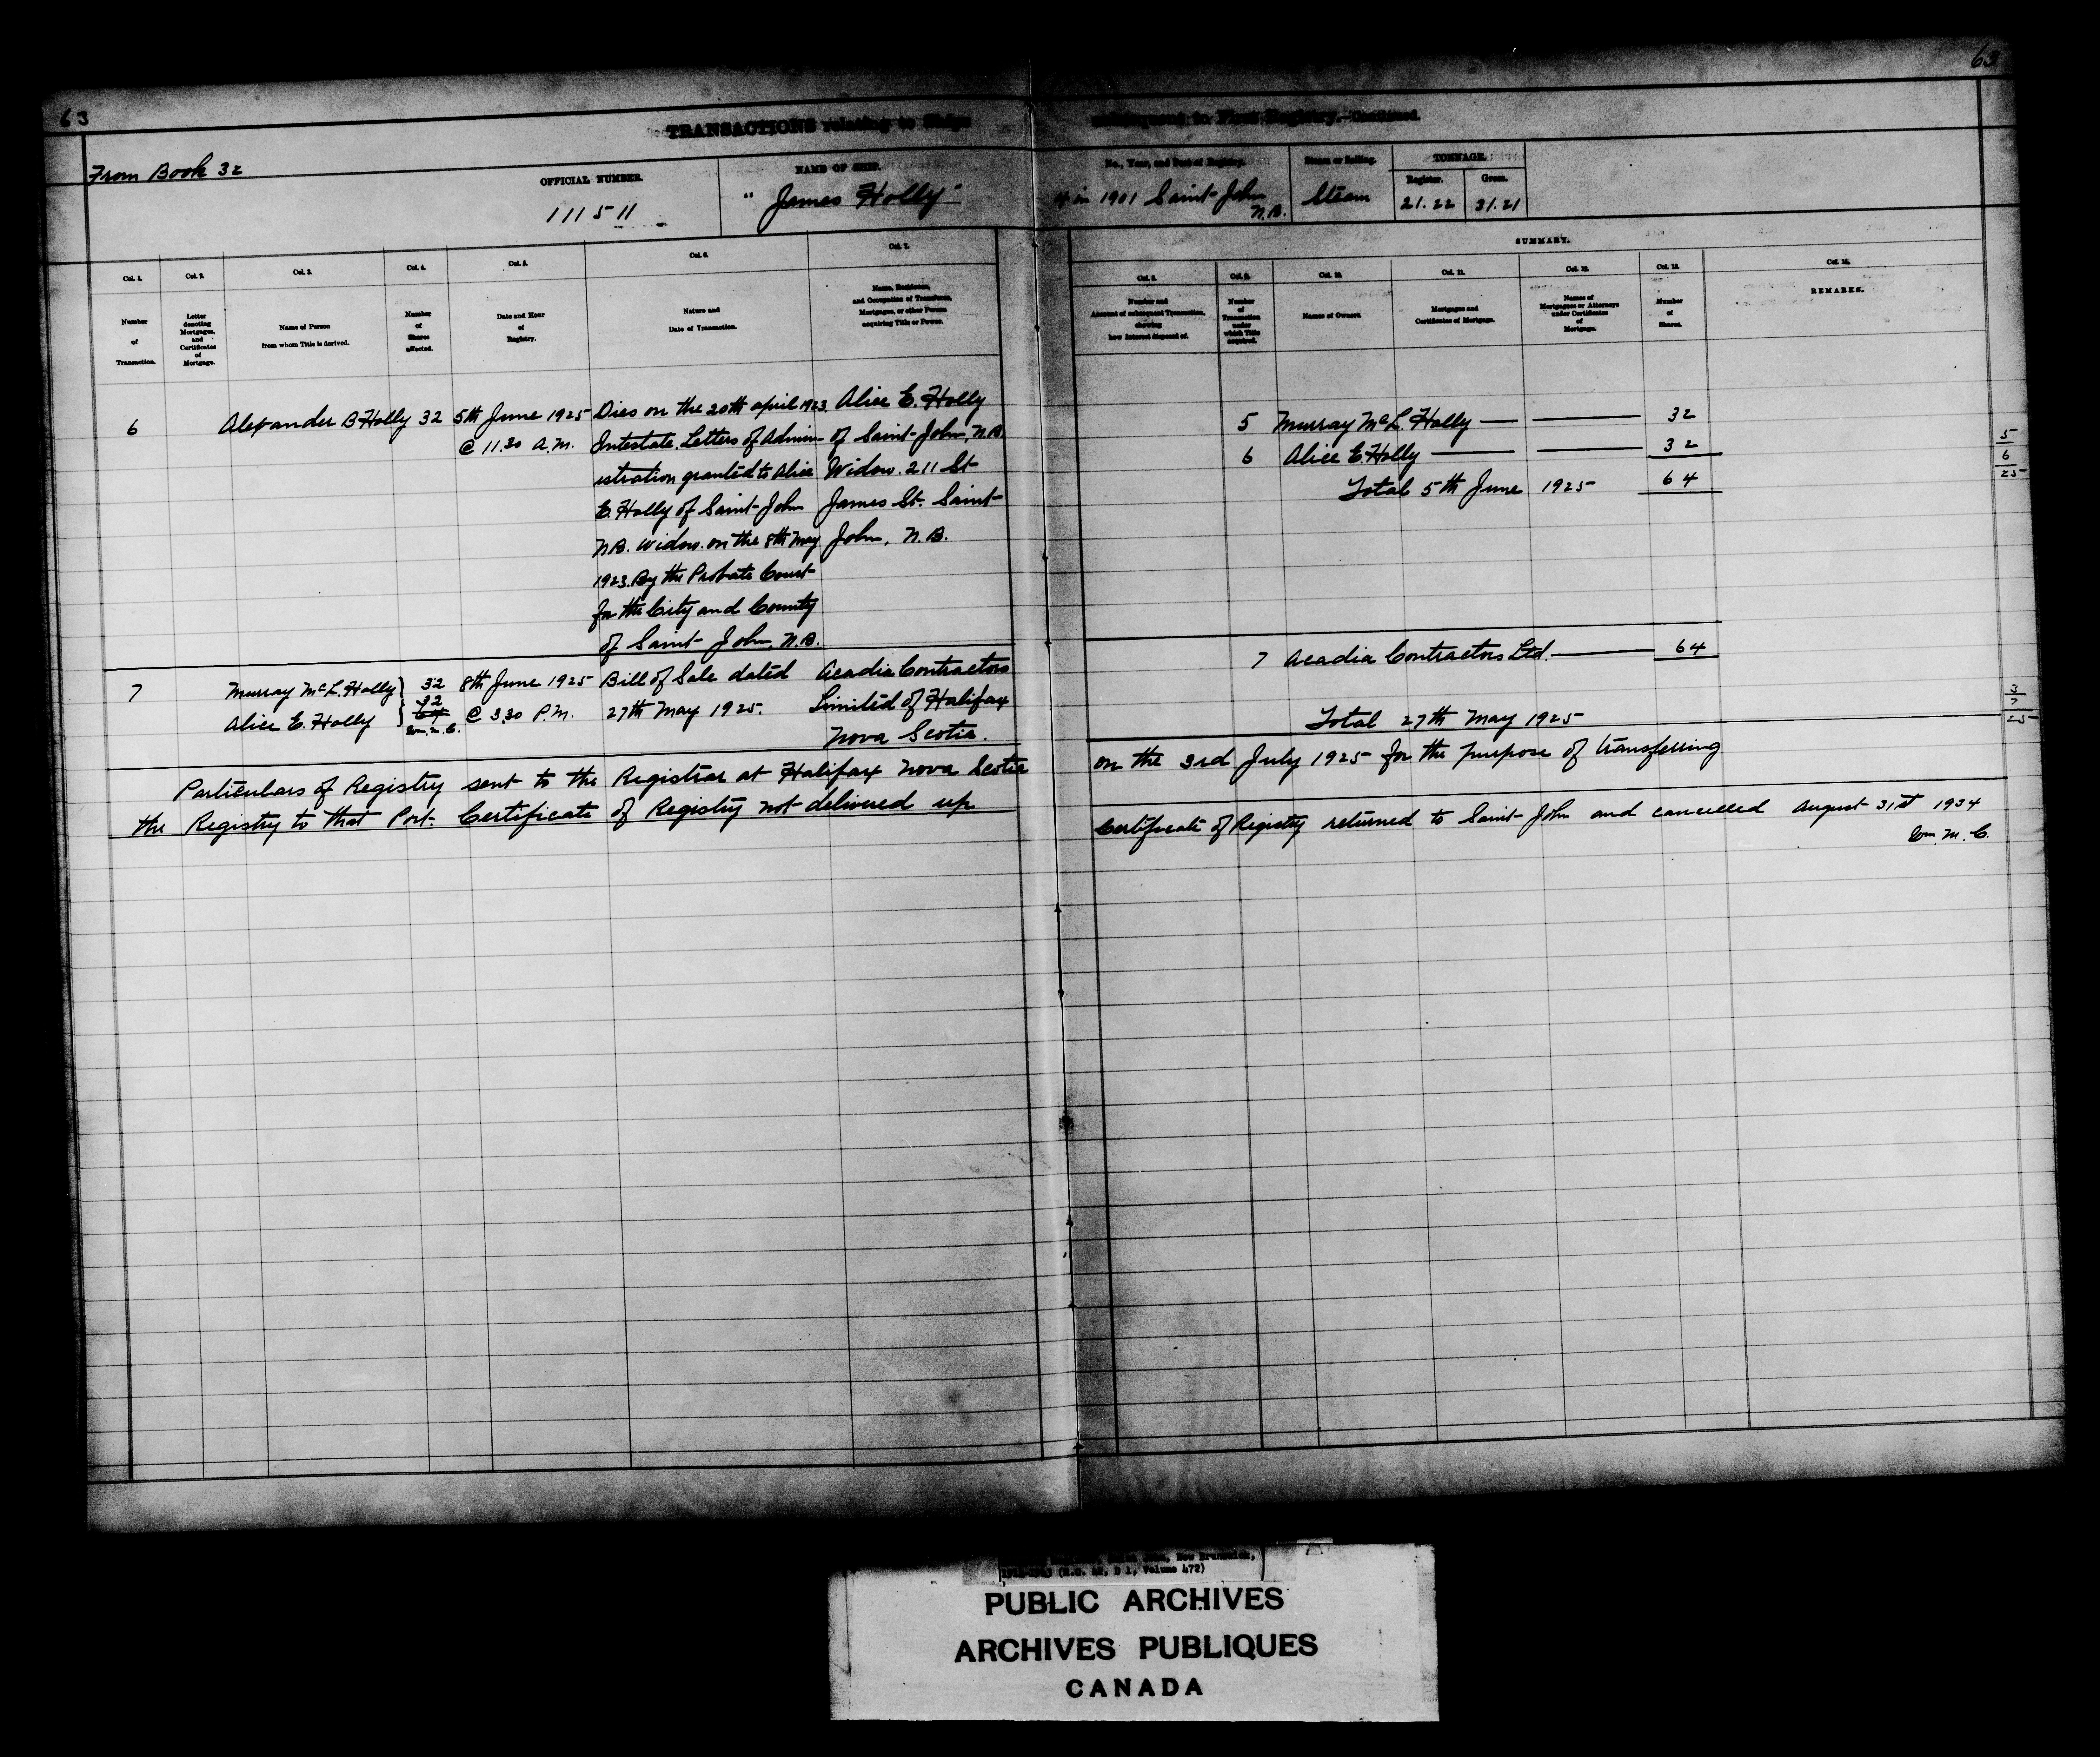 63
63
TRANSACTIONS relating to Ships
subsequent to First Registry.—Continued.
From Book 32
OFFICIAL NUMBER.
111511
NAME OF SHIP.
"James Holly"
No., Year, and Port of Registry.
in 1901 Saint John
N.B.
Steam or Sailing.
Steam
TONNAGE.
Register.
Gross.
21.22
31.21
SUMMARY.
Col. 1.
Col. 2.
Col. 3.
Col. 4.
Col. 5.
Col. 6.
Col. 7.
Number
of
Transaction.
Letter
denoting
Mortgages,
and
Certificates
of
Mortgage.
Name of Person
from whom Title is derived.
Number
of
Shares
affected.
Date and Hour
of
Registry.
Nature and
Date of Transaction.
Name, Residence,
and Occupation of Transferee,
Mortgagee, or other Person
acquiring Title or Power.
Col. 8.
Col. 9.
Col. 10.
Col. 11.
Col. 12.
Col. 13.
Col. 14.
Number and
Amount of subsequent Transaction,
showing
how Interest disposed of.
Number
of
Transaction
under
which Title
acquired.
Names of Owners.
Mortgages and
Certificates of Mortgage.
Names of
Mortgagees or Attorneys
under Certificates
of
Mortgage.
Number
of
Shares.
REMARKS.
6
Alexander B Holly
32
5th June 1925
@ 11.30 A.M.
Dies on the 20th April 1923
Intestate. Letters of Admin-
istration granted to Alice
E. Holly of Saint John
N.B. Widow. on the 8th May
1923. By the Probate Court
for the City and County
of Saint John, N.B.
Alice E. Holly
of Saint John, N.B.
Widow. 211 St
James St. Saint
John, N.B.
5 Murray McL. Holly 32
6 Alice E. Holly 32
Total 5th June 1925 64
5
6
25
7
Murray McL. Holly
Alice E. Holly
32
32
64
Wm. M. C.
8th June 1925
@ 3.30 P.M.
Bill of Sale dated
27th May 1925.
Acadia Contractors
Limited of Halifax
Nova Scotia.
7 Acadia Contractors Ltd. 64
Total 27th May 1925
3
7
25
Particulars of Registry sent to the Registrar at Halifax Nova Scotia on the 3rd July 1925 for the purpose of transferring
the Registry to that Port. Certificate of Registry not delivered up
Certificate of Registry returned to Saint John and cancelled August 31st 1934
Wm. M. C.
New Brunswick,
(R.G. 42, D 1, Volume 472)
PUBLIC ARCHIVES
ARCHIVES PUBLIQUES
CANADA